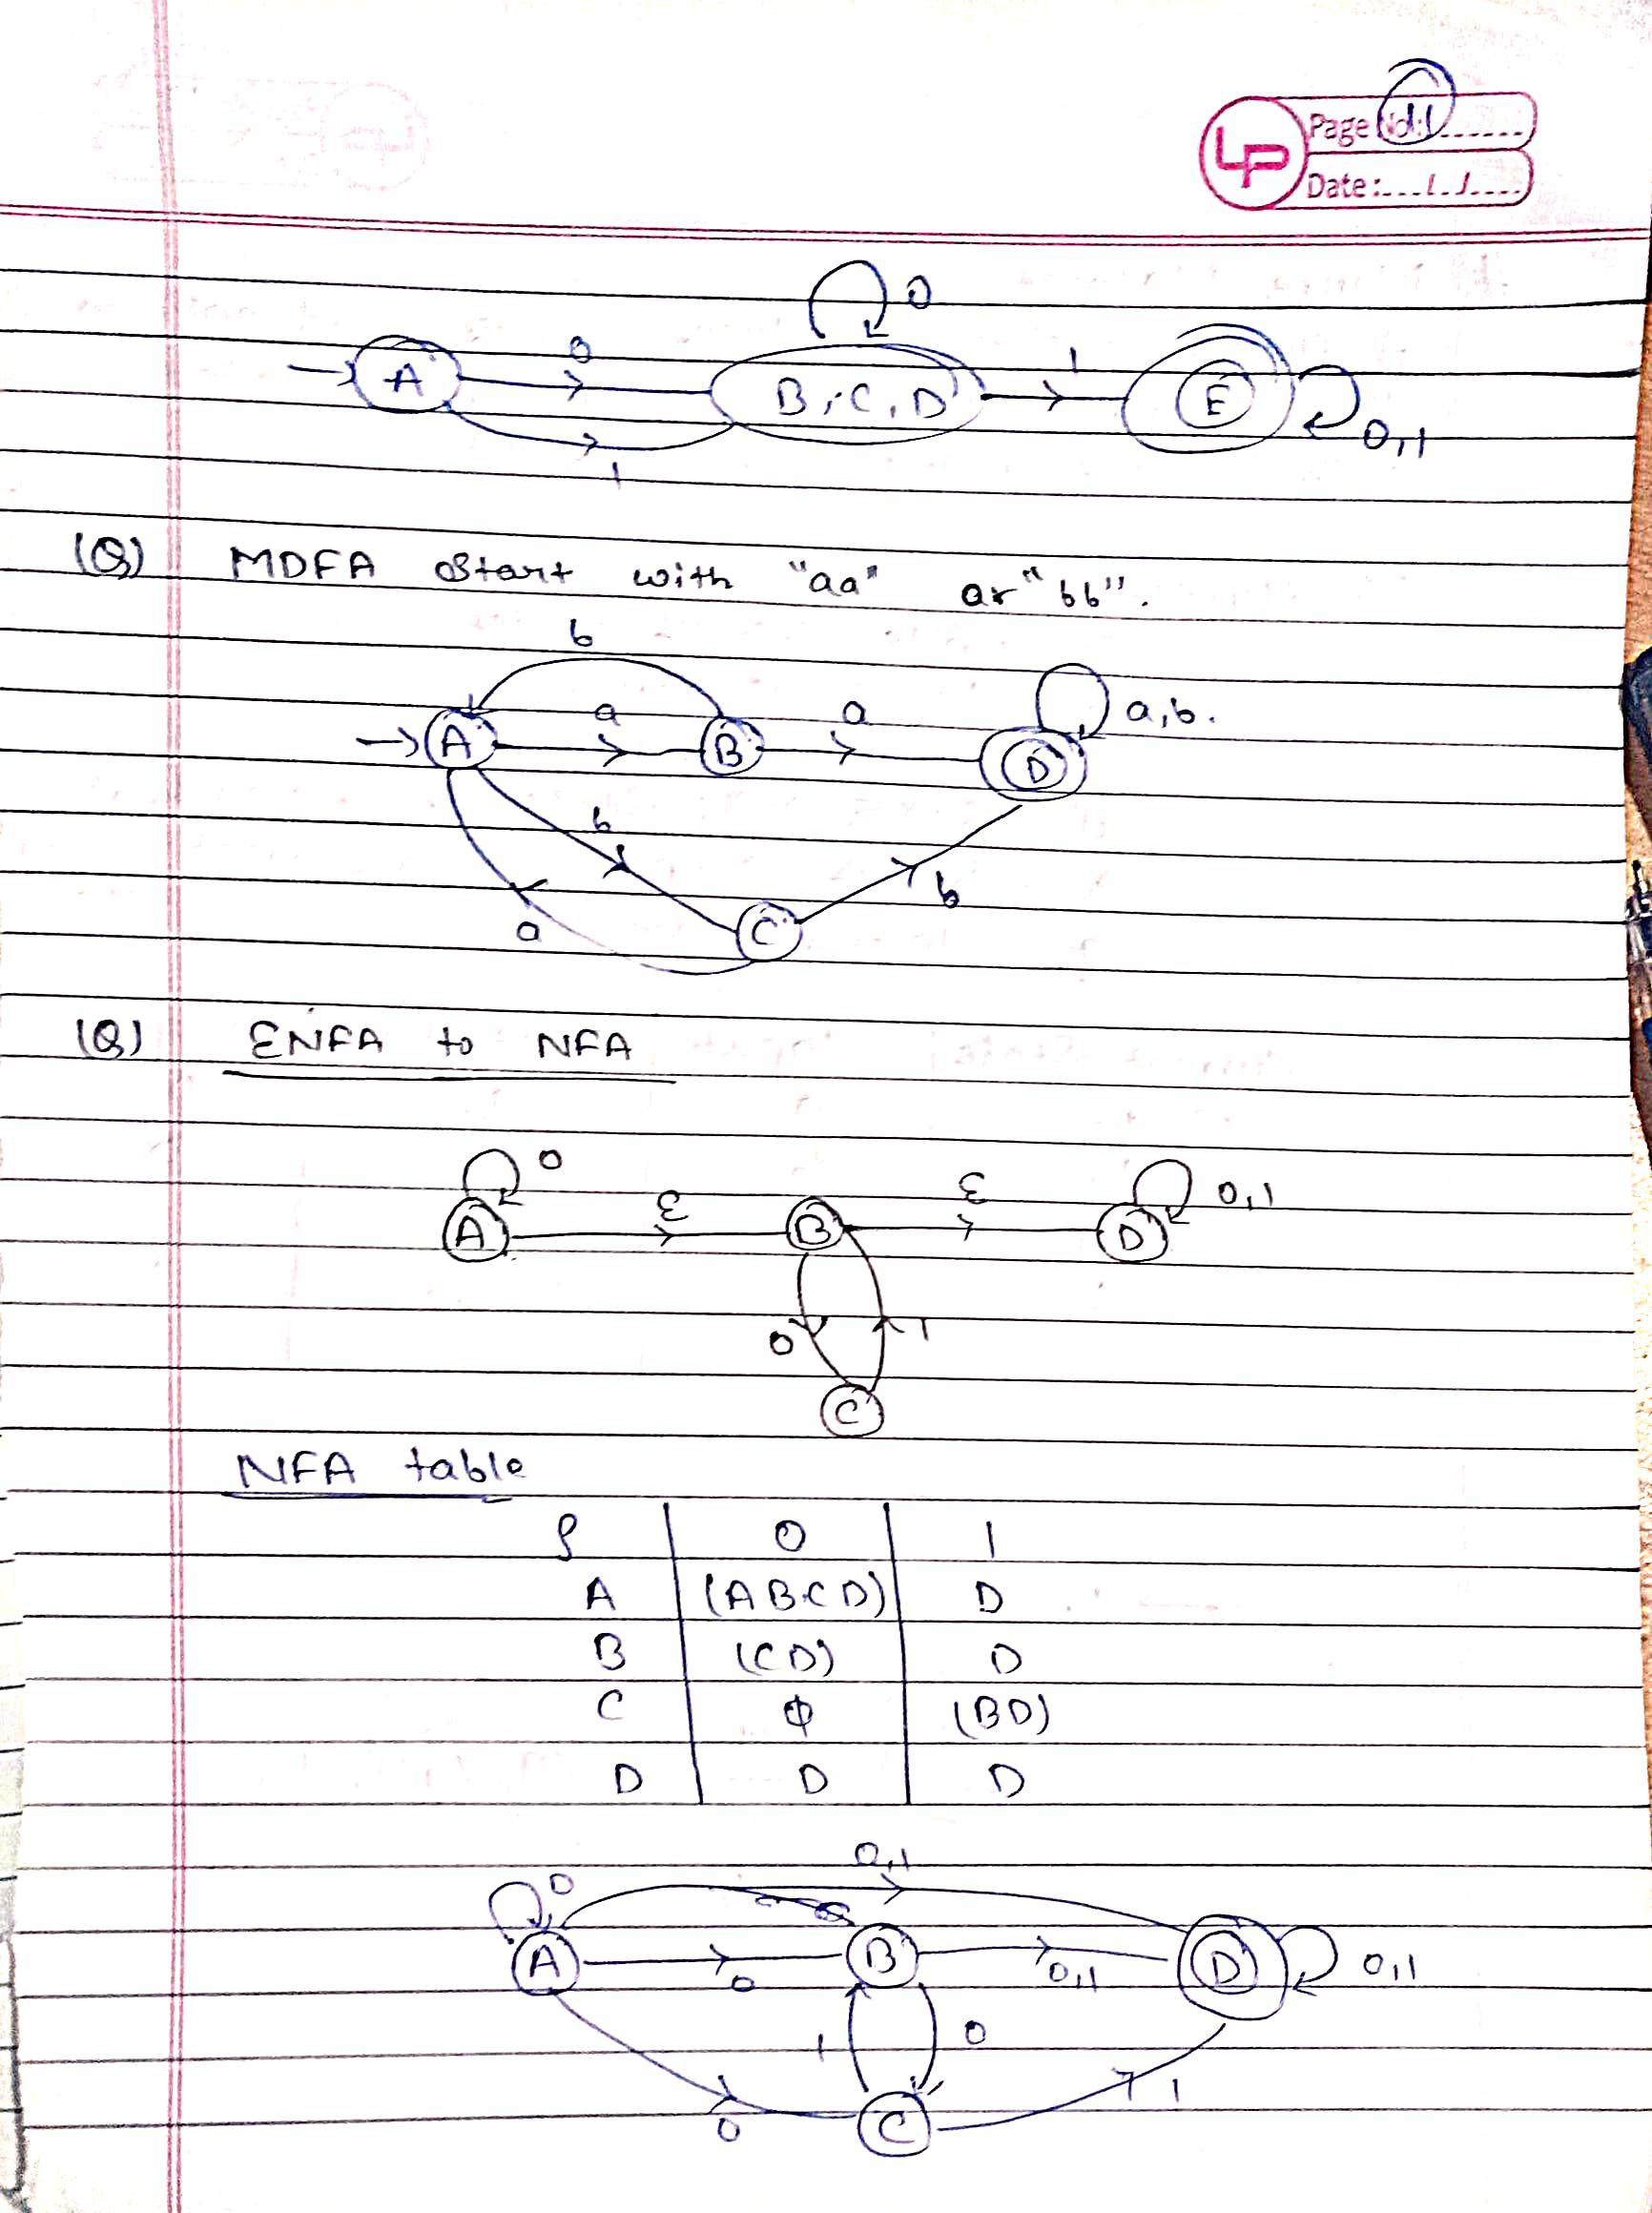 LP
Page No: 11
Date:
0
A 0 B, C, D 1 E
1
0,1
(Q) MDFA Start with "aa" or "bb".
b
A a B a D a,b.
b
b
a
C
(Q) ENFA to NFA
0
A ε B ε D 0,1
0 1
C
NFA table
δ 0 1
A (ABCD) D
B (CD) D
C ϕ (BD)
D D D
0 0,1
A 0 B 0,1 D 0,1
1 0
0 C 1